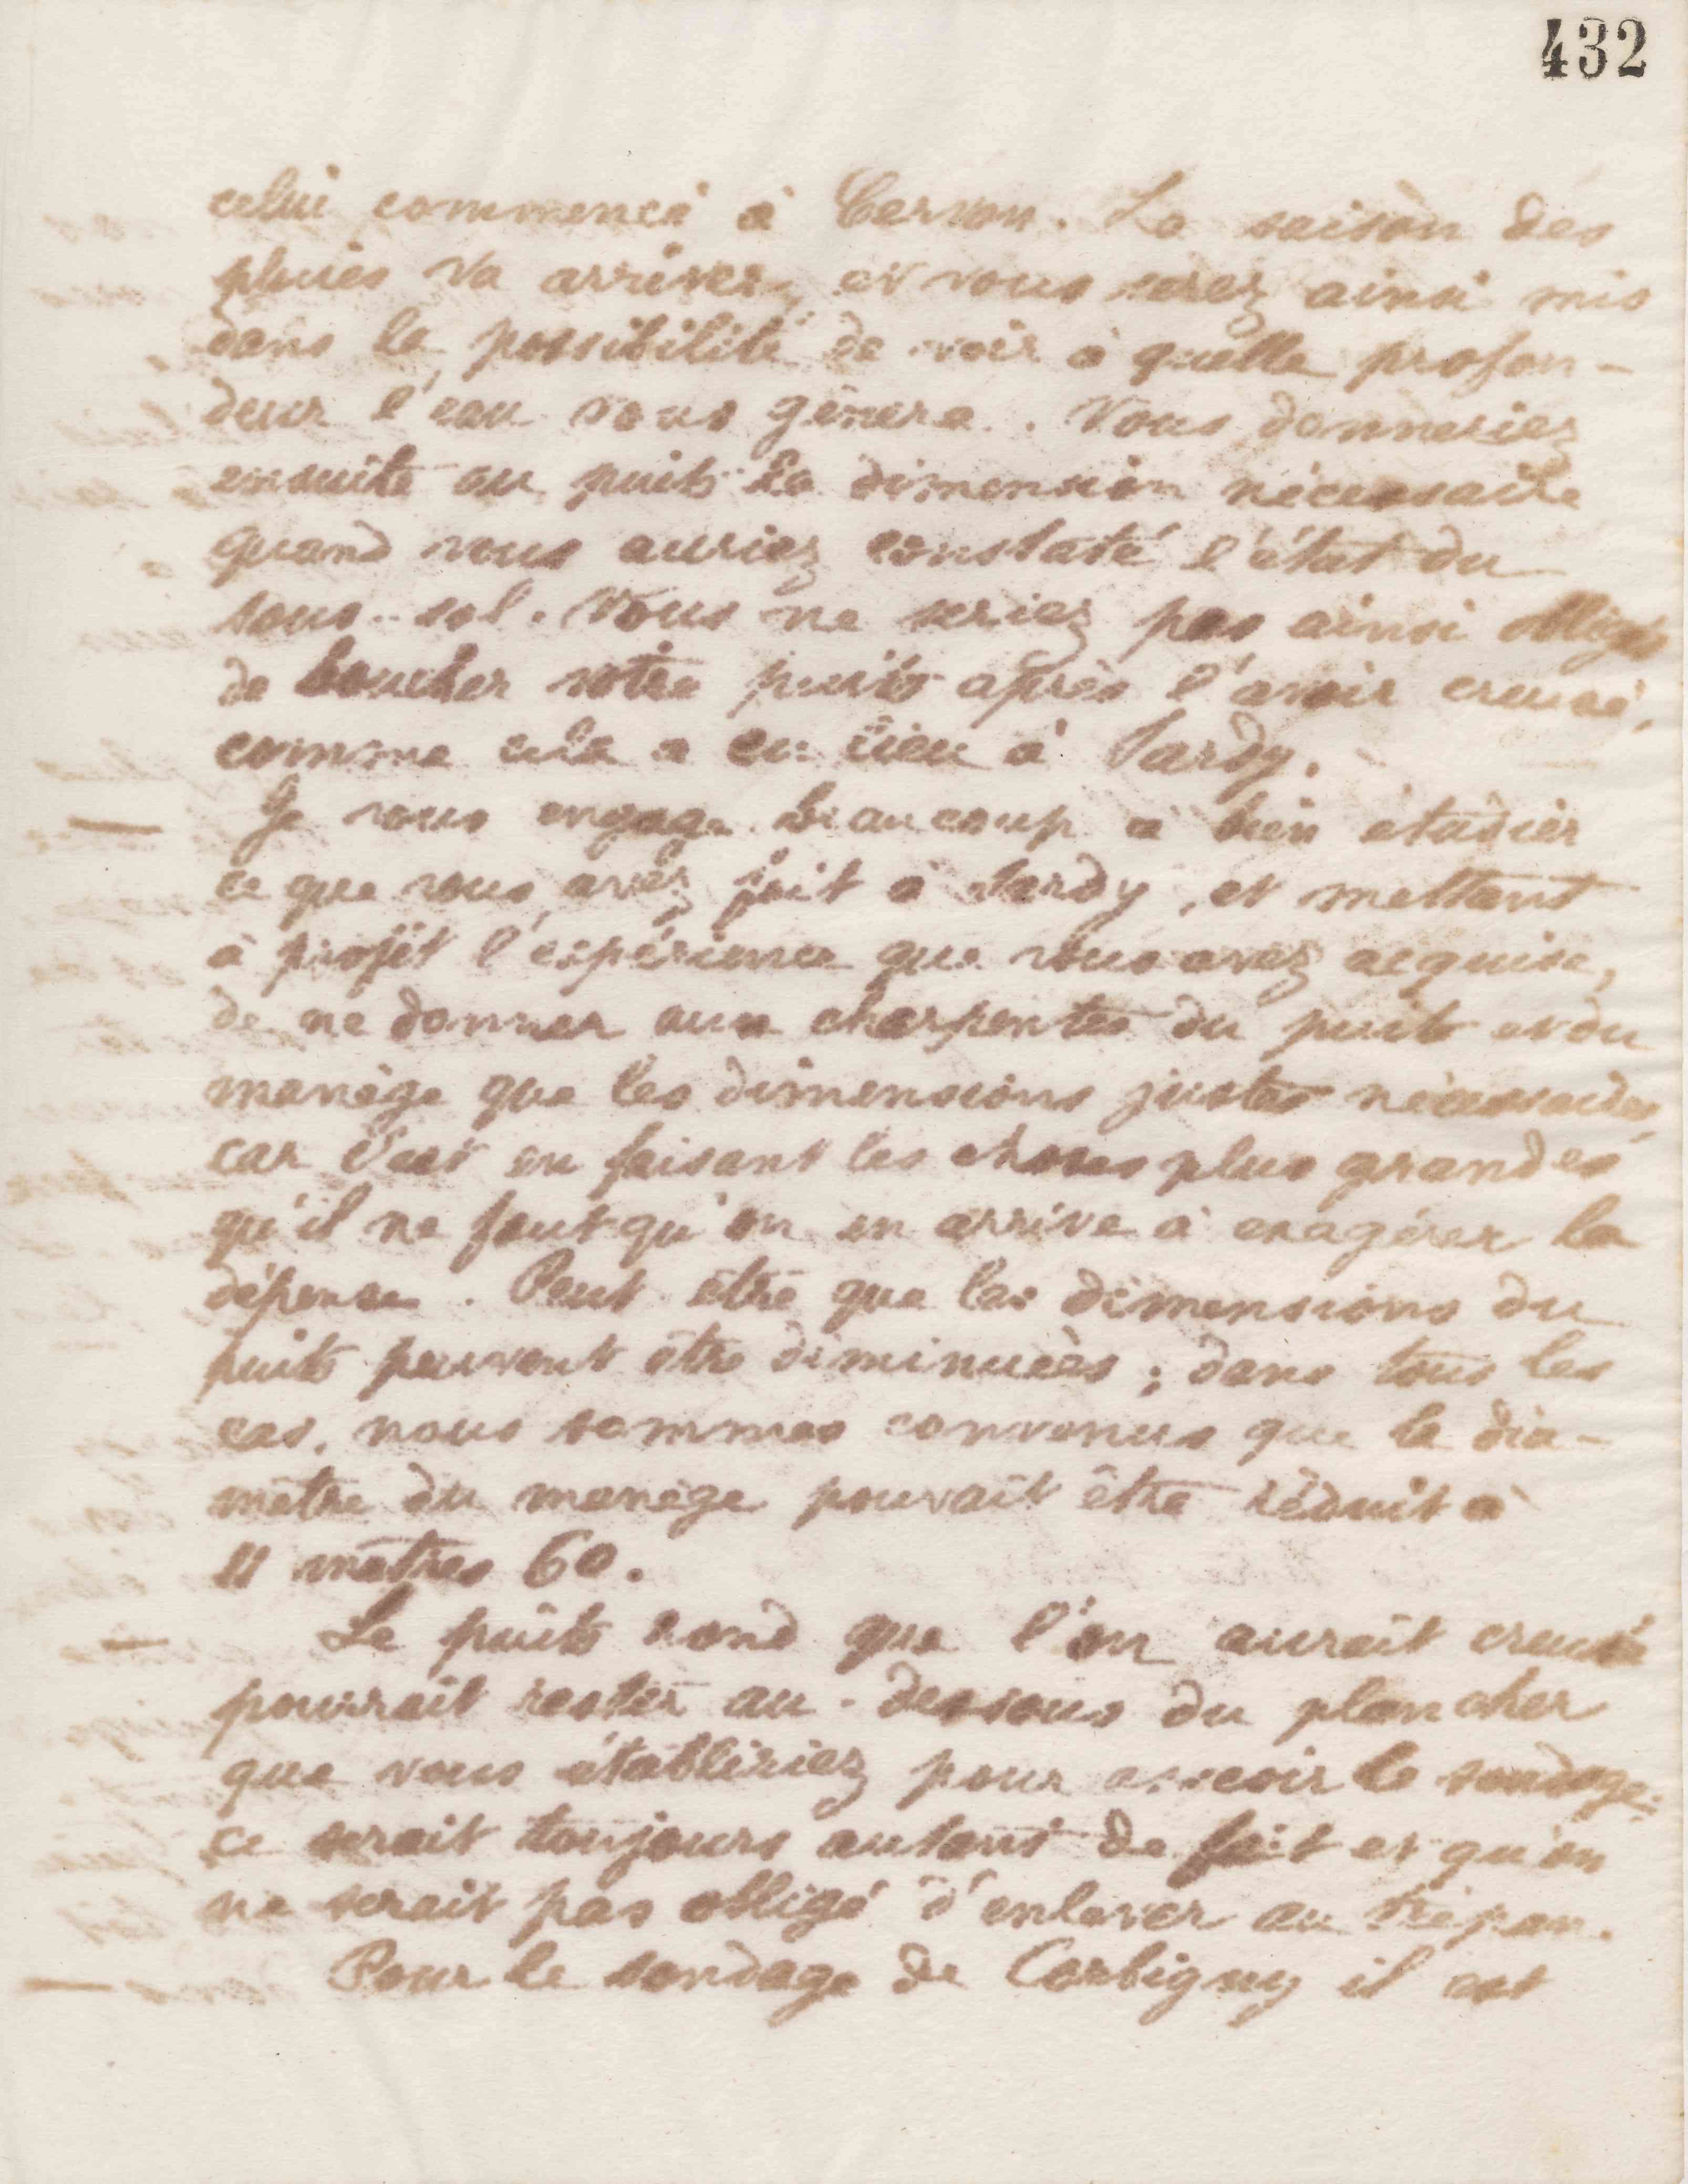 432
celui commencé à Cervon. La saison des
pluies va arriver, et vous serez ainsi mis
dans la possibilité de voir à quelle profon-
deur l'eau vous gênera. Vous donneriez
ensuite au puits la dimension nécessaire
quand vous auriez constaté l'état du
sous-sol. Vous ne seriez pas ainsi obligés
de boucher votre puits après l'avoir creusé,
comme cela a eu lieu à Sardy.
Je vous engage beaucoup à bien étudier
ce que vous avez fait à Sardy, et mettant
à profit l'expérience que vous avez acquise,
de ne donner aux charpentes du puits et du
manège que les dimensions justes nécessaires,
car c'est en faisant les choses plus grandes
qu'il ne faut qu'on en arrive à exagérer la
dépense. Peut être que les dimensions du
puits peuvent être diminuées ; dans tous les
cas, nous sommes convenus que le dia-
mètre du manège pouvait être réduit à
11 mètres 60.
Le puits rond que l'on aurait creusé
pourrait rester au-dessous du plancher
que vous établiriez pour asseoir le sondage :
ce serait toujours autant de fait et qu'on
ne serait pas obligé d'enlever au trépan.
Pour le sondage de Corbigny il est